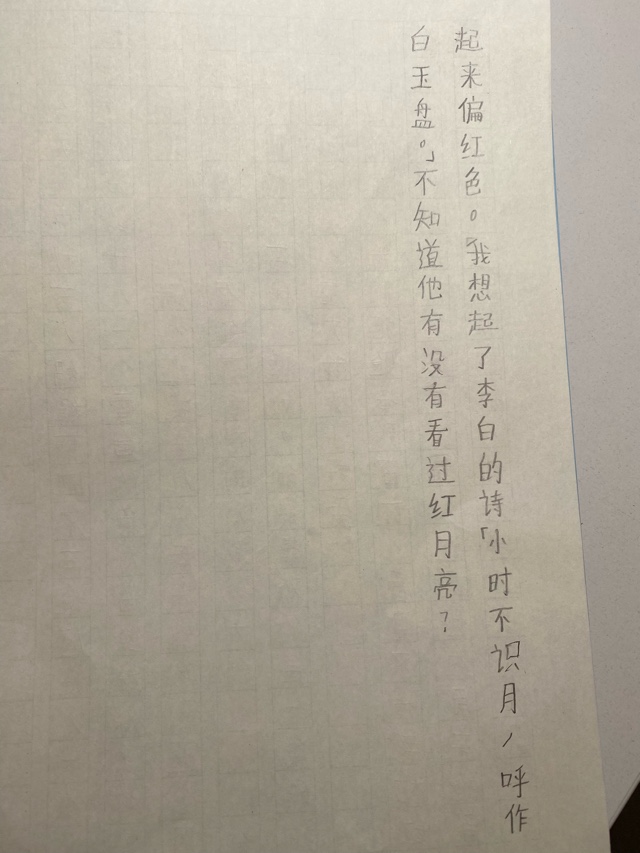 起来偏红色。「我想起了李白的诗「小时不识月，呼作
白玉盘。」不知道他有没有看过红月亮？